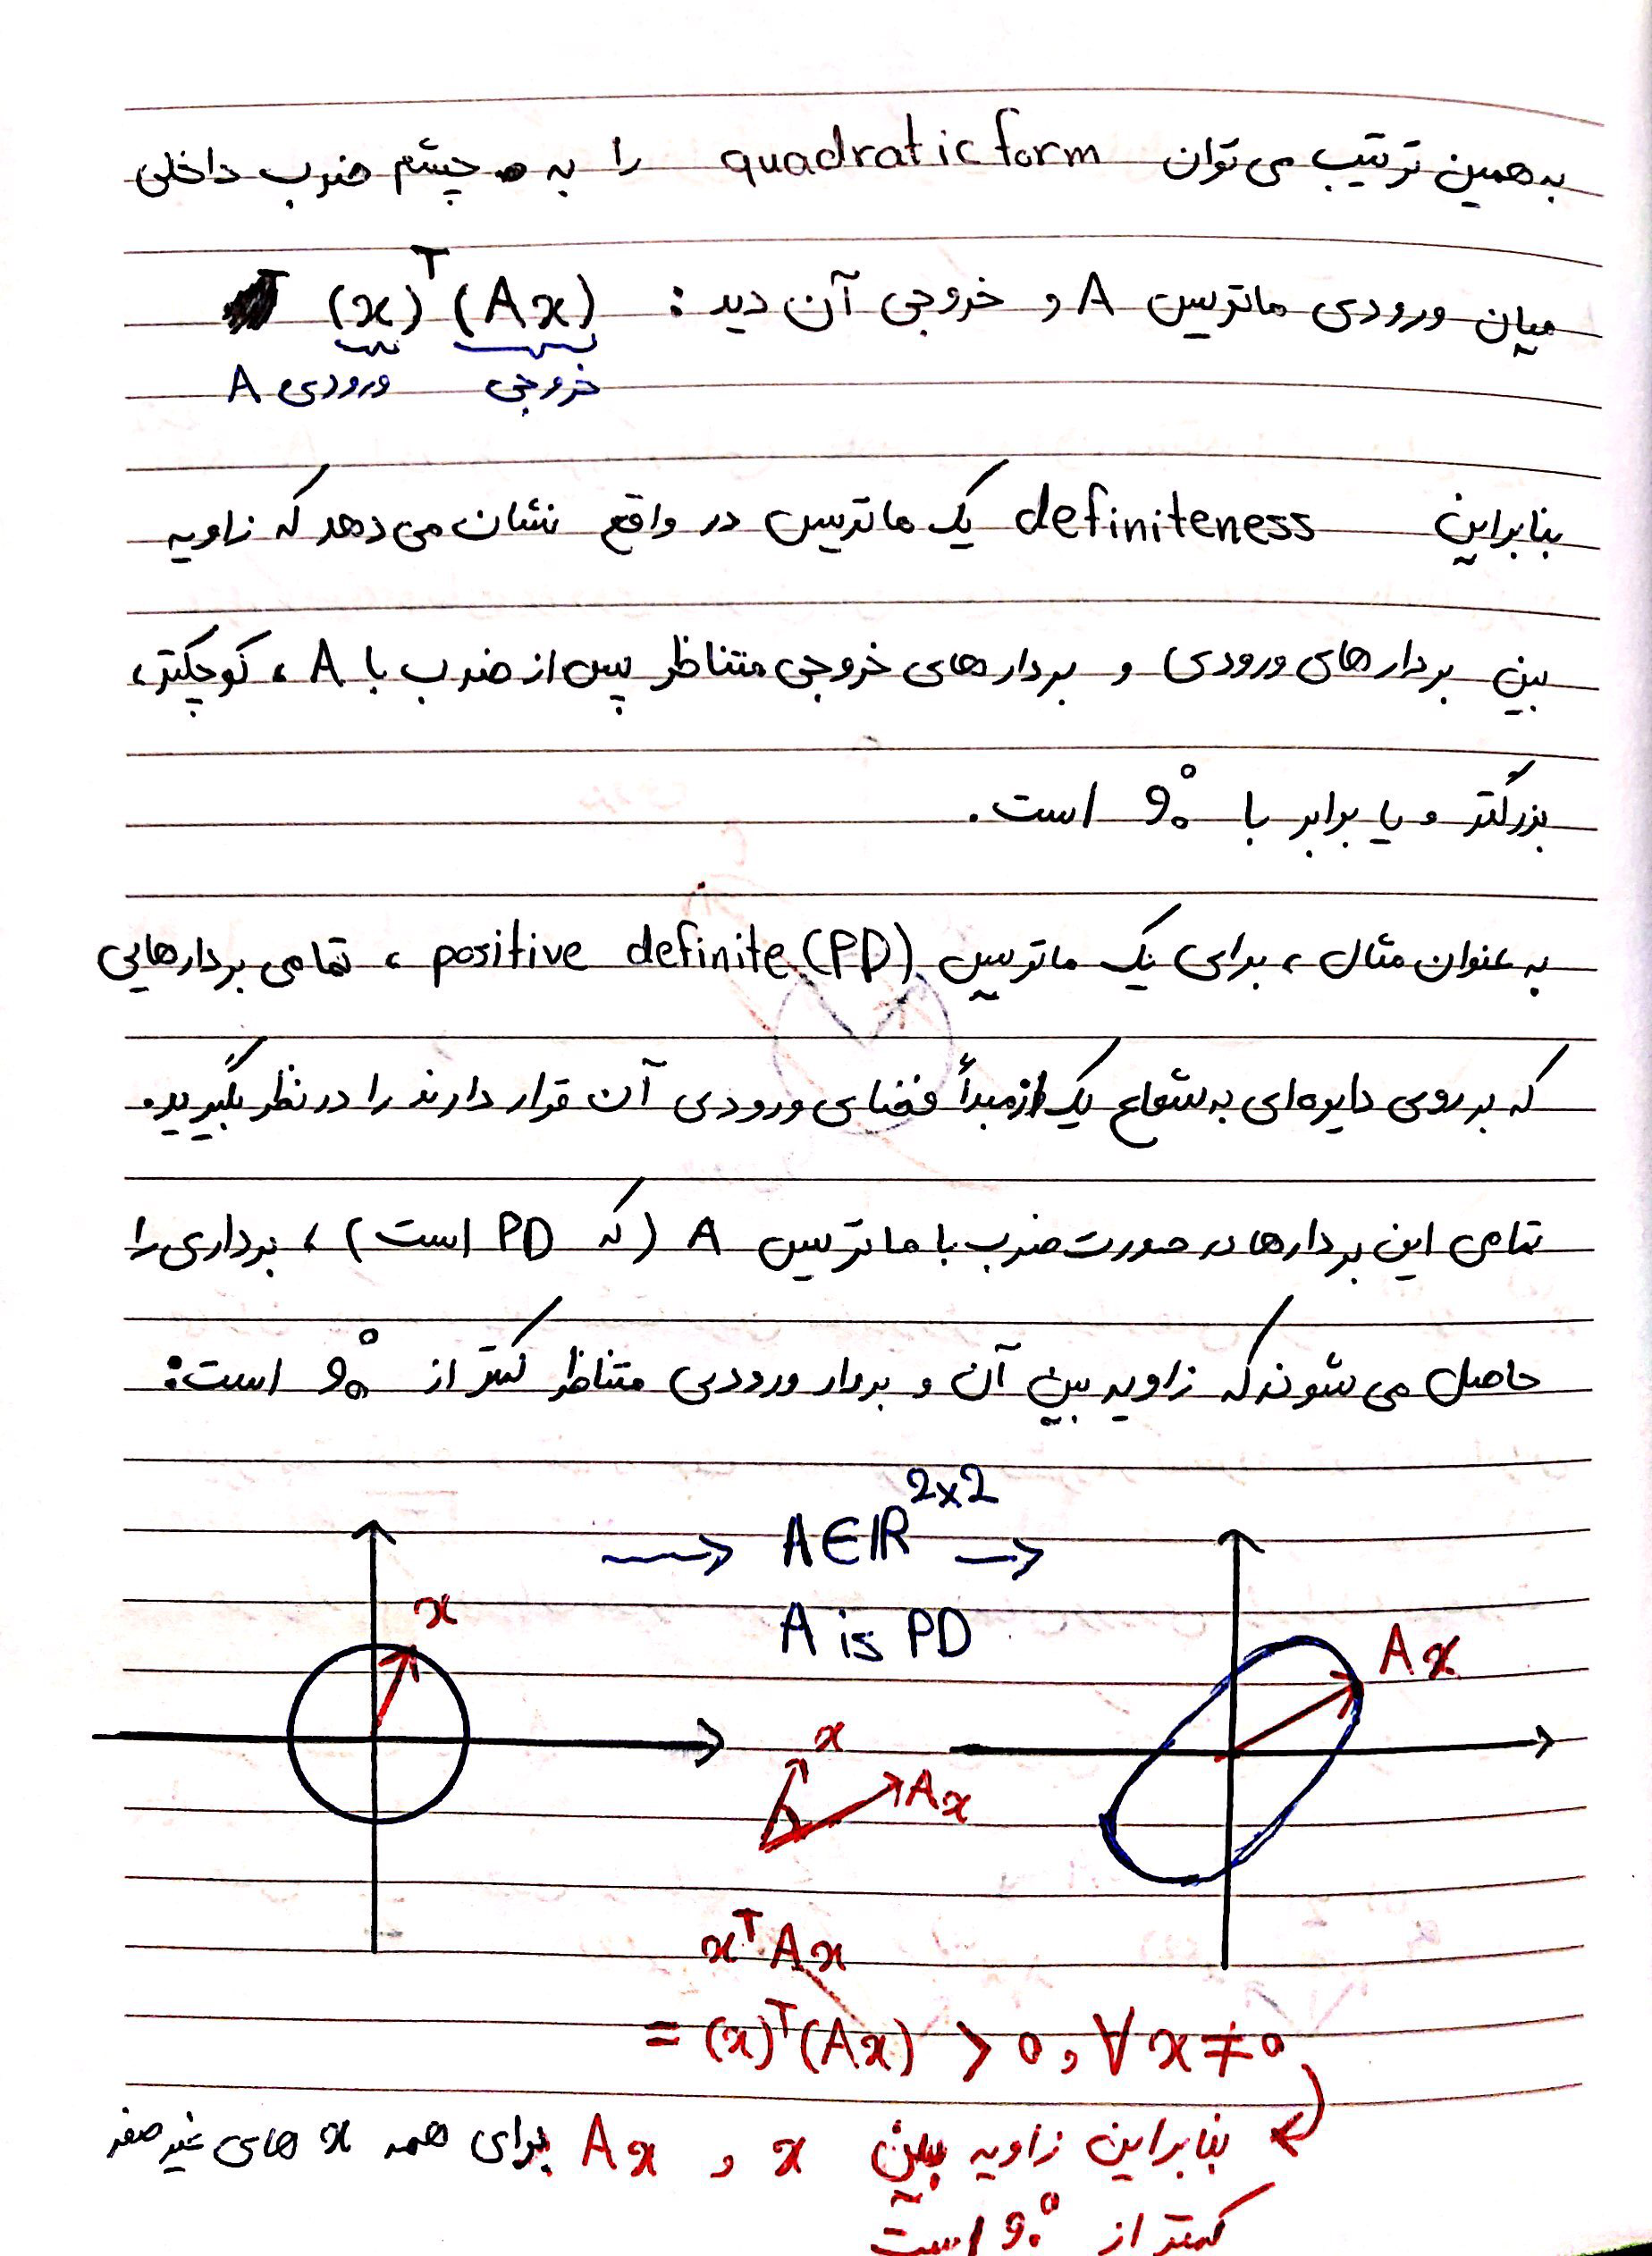 به همین ترتیب می توان quadratic form را به چشم ضرب داخلی
میان ورودی ماتریس A و خروجی آن دید : (x)ᵀ (Ax)
خروجی ورودی A
بنابراین definiteness یک ماتریس در واقع نشان می دهد که زاویه
بین بردارهای ورودی و بردارهای خروجی متناظر پس از ضرب با A ، کوچکتر،
بزرگتر و یا برابر با 90° است .
به عنوان مثال ، برای یک ماتریس positive definite (PD) ، تمامی بردارهایی
که بر روی دایره‌ای به شعاع یک از مبدأ فضای ورودی آن قرار دارند را در نظر بگیرید.
تمامی این بردارها در صورت ضرب با ماتریس A (که PD است) ، برداری را
حاصل می شوند که زاویه بین آن و بردار ورودی متناظر کمتر از 90° است:
→ A∈ℝ²ˣ² →
A is PD
x
Ax
x
Ax
xᵀAx
= (x)ᵀ(Ax) > 0 , ∀ x ≠ 0
بنابراین زاویه بین x و Ax برای همه x های غیر صفر
کمتر از 90° است